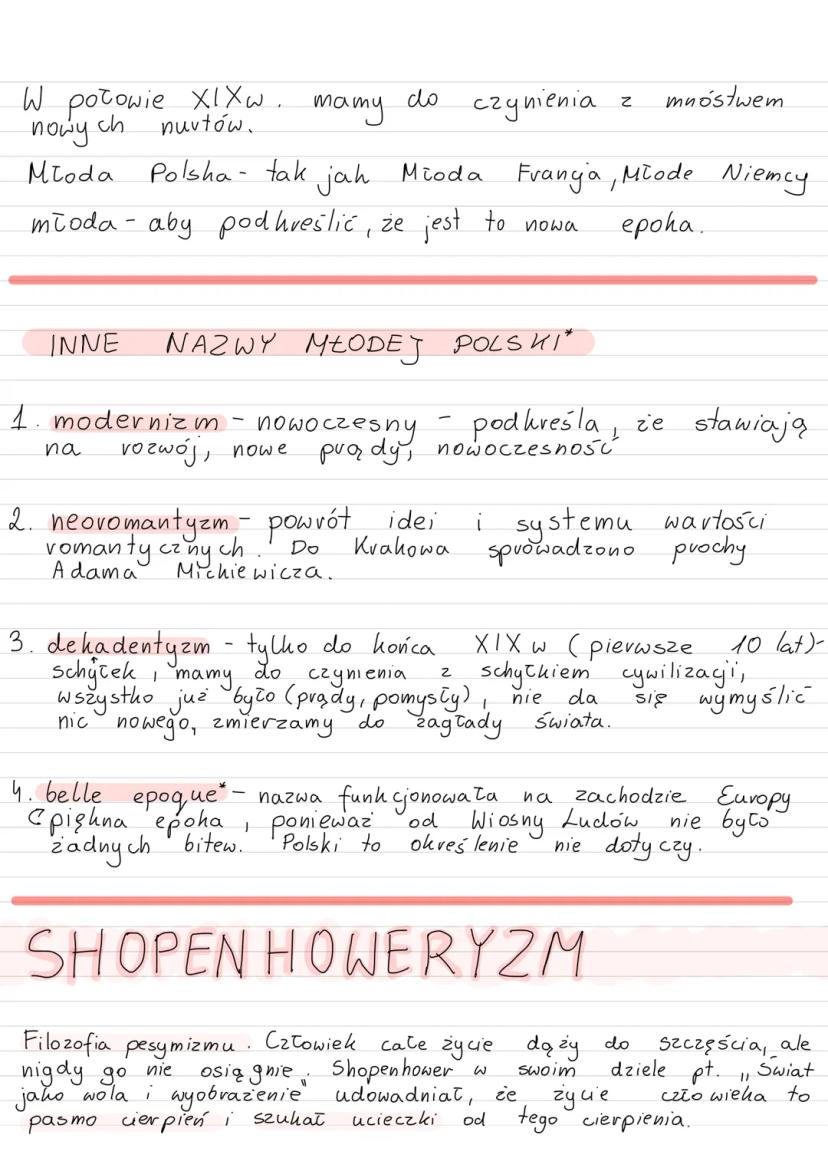 W połowie XIXw. mamy do czynienia z mnóstwem
nowych nurtów.
Młoda Polska - tak jak Młoda Francja, Młode Niemcy
młoda - aby podkreślić, że jest to nowa epoka.
INNE NAZWY MŁODEJ POLSKI*
1. modernizm - nowoczesny - podkreśla, że stawiają
na rozwój, nowe prądy, nowoczesność
2. neoromantyzm - powrót idei i systemu wartości
romantycznych. Do Krakowa sprowadzono prochy
Adama Mickiewicza.
3. dekadentyzm - tylko do końca XIX w (pierwsze 10 lat) -
schyłek, mamy do czynienia z schyłkiem cywilizacji,
wszystko już było (prądy, pomysły), nie da się wymyślić
nic nowego, zmierzamy do zagłady świata.
4. belle epoque* - nazwa funkcjonowała na zachodzie Europy
piękna epoka, ponieważ od Wiosny Ludów nie było
żadnych bitew. Polski to określenie nie dotyczy.
SHOPENHOWERYZM
Filozofia pesymizmu. Człowiek całe życie dąży do szczęścia, ale
nigdy go nie osiągnie. Shopenhower w swoim dziele pt. „Świat
jako wola i wyobrażenie" udowadniał, że życie człowieka to
pasmo cierpień i szukał ucieczki od tego cierpienia.